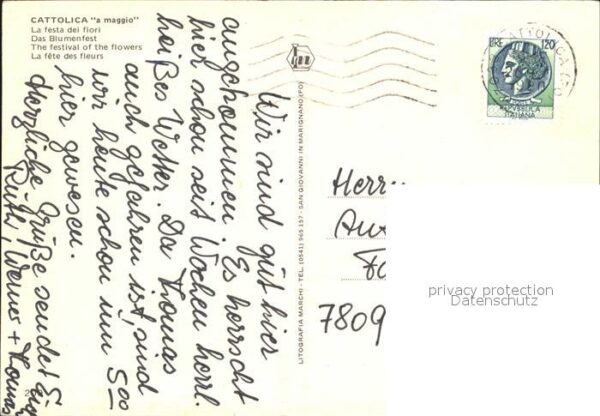 CATTOLICA "a maggio"
La festa dei fiori
Das Blumenfest
The festival of the flowers
La fête des fleurs
Wir sind gut hier
angekommen. Es herrscht
hier schon seit Wochen herrl.
heißes Wetter. Da Thomas
auch gefahren ist, sind
wir heute schon um 5 00
hier gewesen.
Herzliche Grüße sendet
Ruth, Werner + Thomas
LITOGRAFIA MARCHI - TEL. (0541) 965 157 - SAN GIOVANNI IN MARIGNANO (FO)
LIRE 120
REPVBBLICA
ITALIANA
CATTOLICA
Herr
7809
privacy protection
Datenschutz